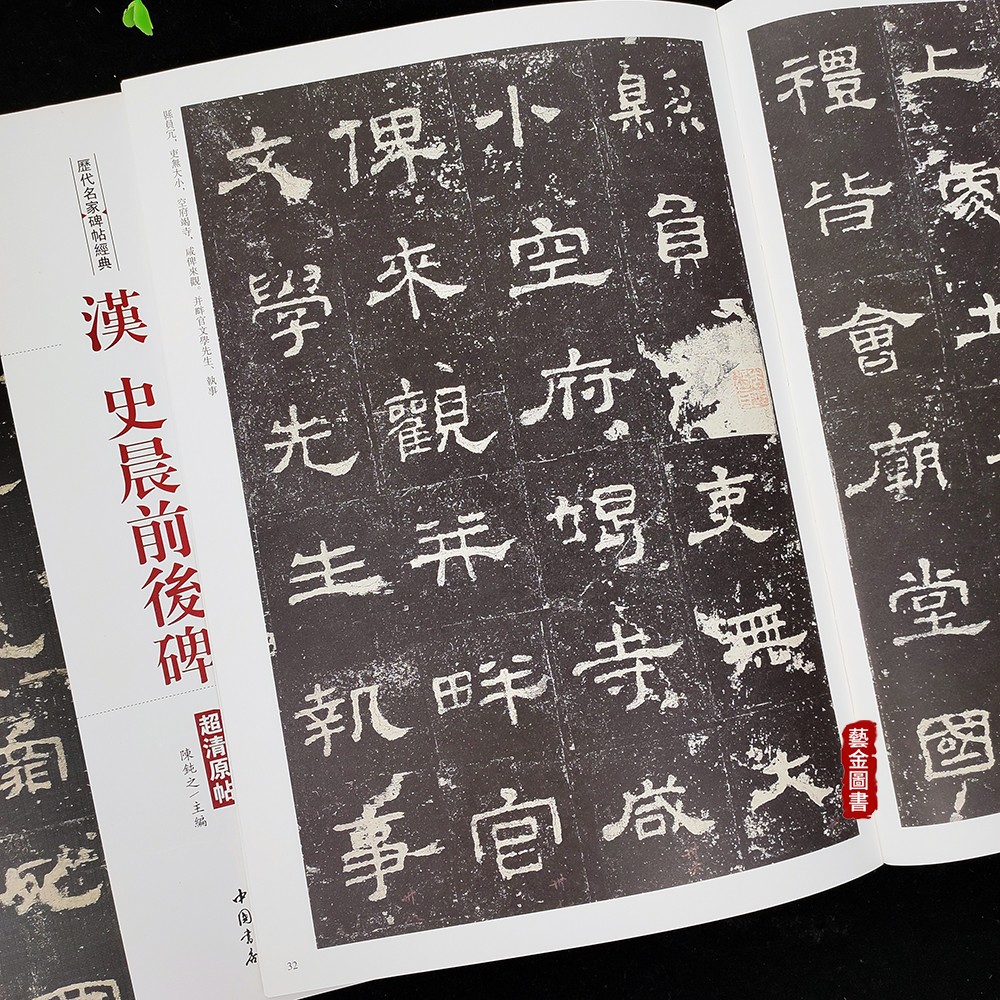 歷代名家碑帖經典
漢 史晨前後碑
超清原帖
陳鈍之/主編
中国書店
縣員冗,吏無大小,空府竭寺,咸俾來觀。并畔官文學先生、執事
上土
禮皆會廟堂國
縣員吏無大
小空府竭寺咸
俾來觀并畔官
文學先生執事
32
藝金圖書